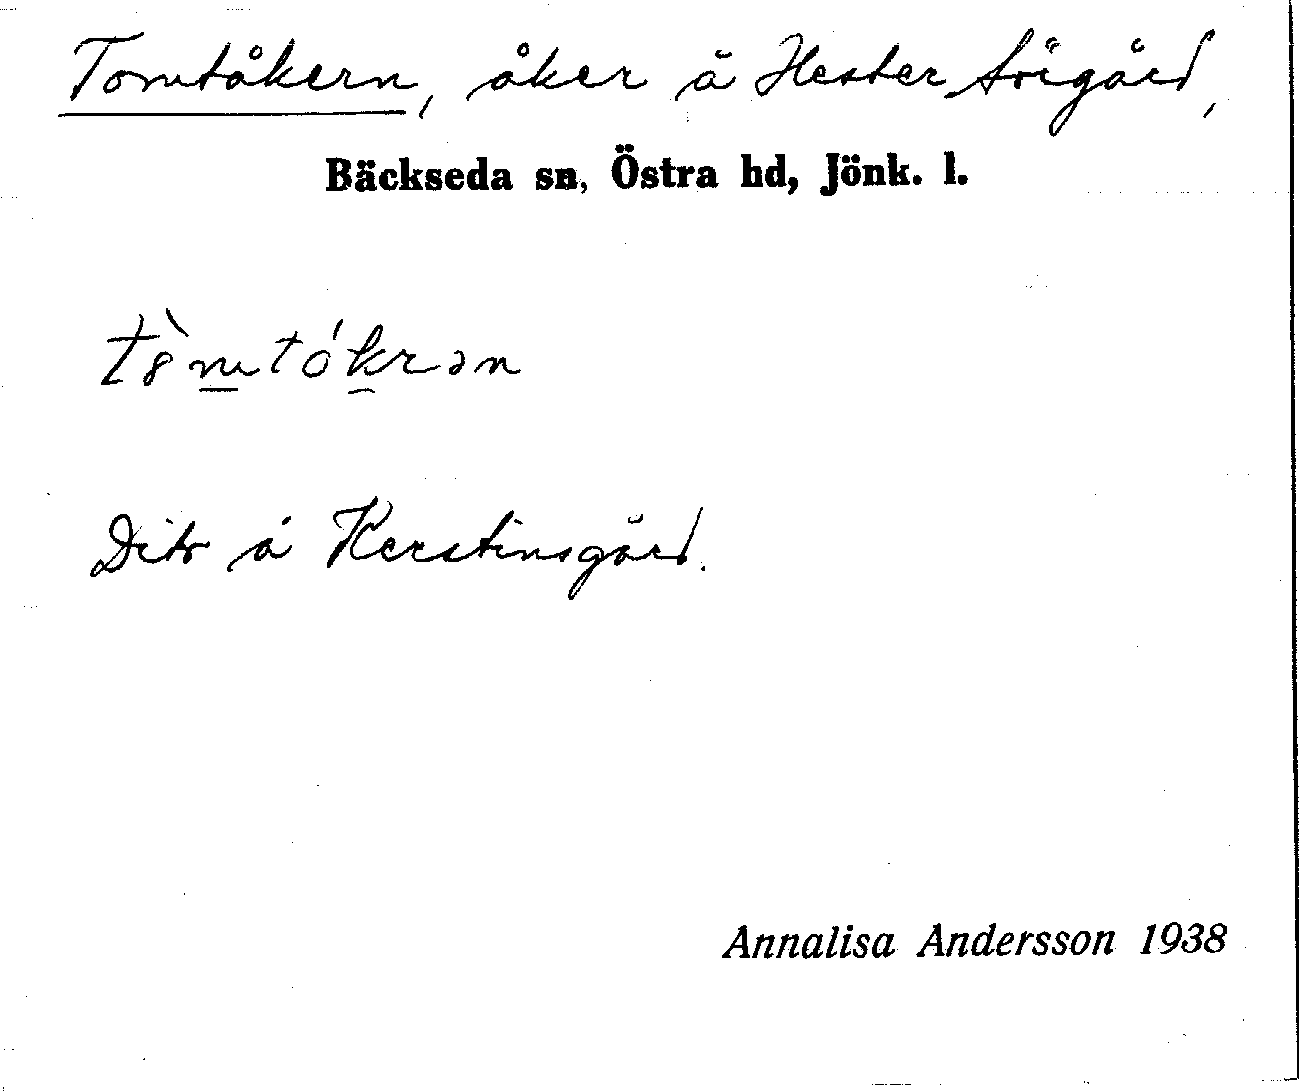 Tomtåkern, åker å Hester Sörgård,
Bäckseda sn, Östra hd, Jönk. l.
Dito å Kerstinsgård.
Annalisa Andersson 1938